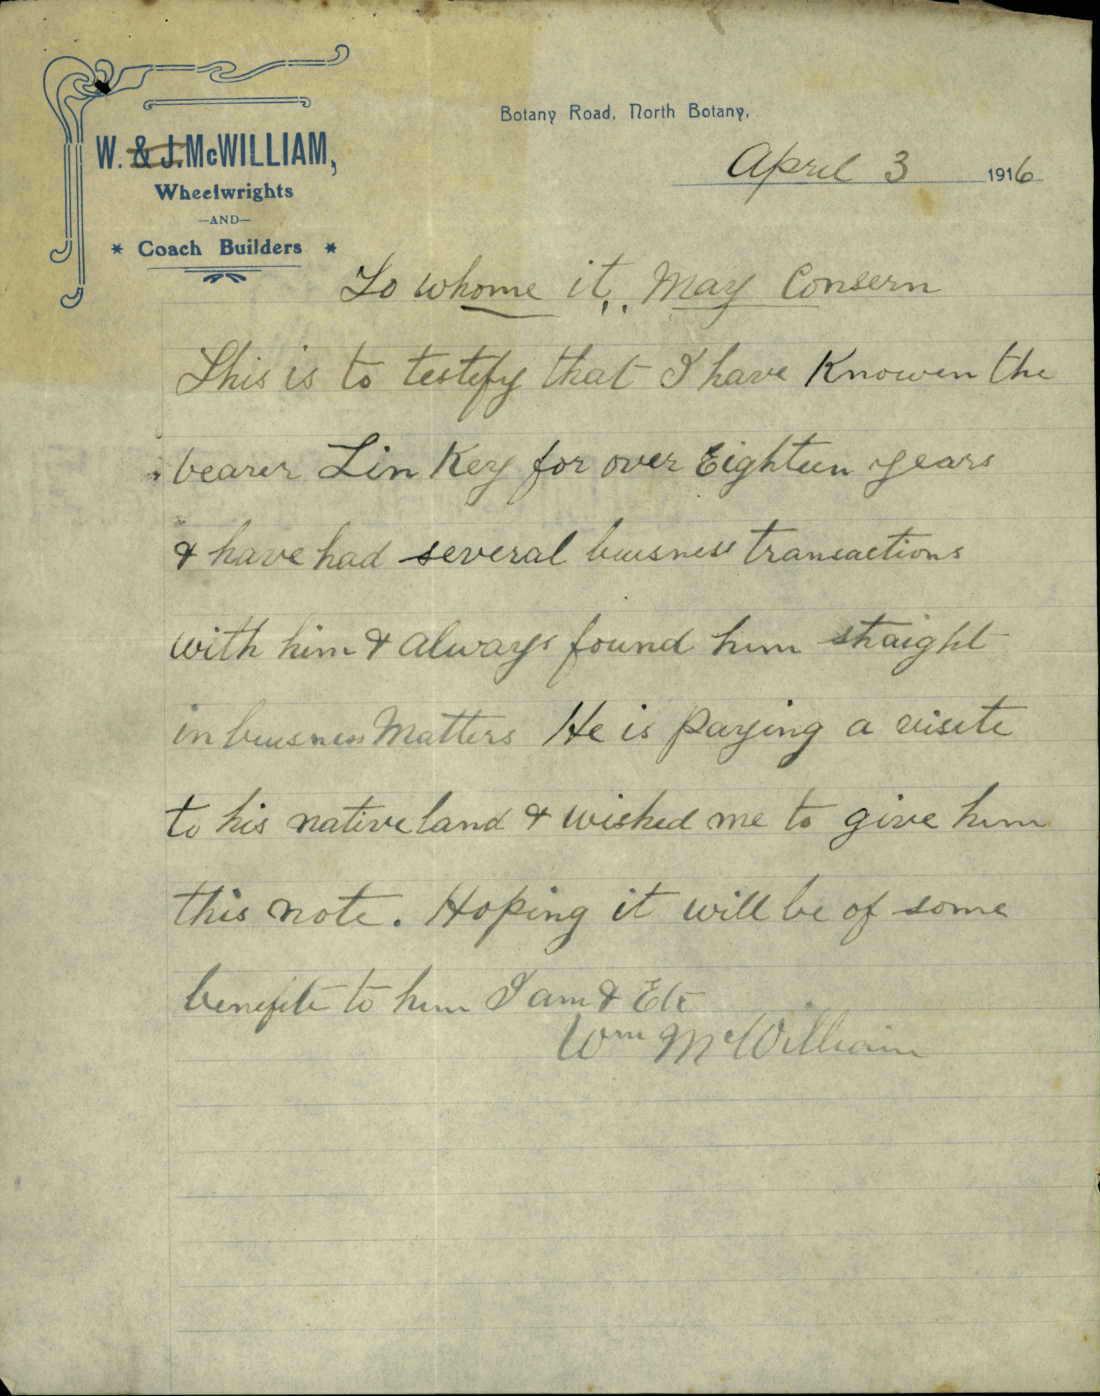 Botany Road, North Botany,
W. & J. McWILLIAM,
Wheelwrights
—AND—
* Coach Builders *
April 3 1916
To whome it, May Consern
This is to testify that I have Knowen the
bearer Lin Key for over Eighteen years
& have had several buisness transactions
with him & always found him staight
in buisness Matters He is paying a visite
to his native land & wished me to give him
this note. Hoping it will be of some
benefite to him I am & Etc
Wm McWilliam